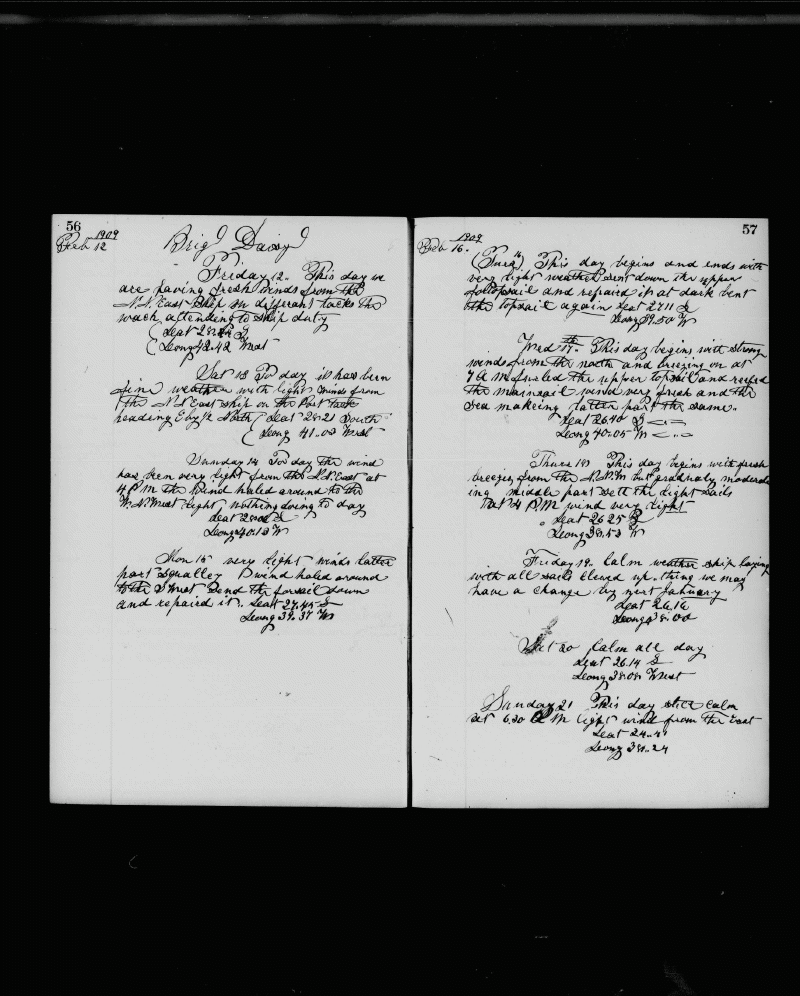 56
1909
Feb 12
Brig Daisy
Friday 12. This day we
are having fresh winds from the
N.N. East Ship on differant tacks the
wach attending to ship duty
Leat
Leong 42.42 West
Sat 13 To day it has been
fine weather with light winds from
the N.N East ship on the Port tack
heading E by ½ North Leat 28.21 South
Leong 41..03 West
Sunday 14 To day the wind
has been very light from the N.N. East at
4 P M the Wind haled around to the
W.N.West light, nothing doing to day
Leat
Leong 40.13 W
Mon 15 very light winds latter
part squalley wind haled around
to the S West Send the forsail down
and repaired it. Leat 27.45 S
Leong 39.37 W
57
1909
Feb 16.
(Tues 16) This day begins and ends with
very light weather sent down the upper
foltopsail and repaired it at dark bent
the topsail again Leat 27.11 S
Leong 39.50 W
Wed 17th. This day begins with strong
winds from the north and breezing on at
7 A m furled the upper topsail and reefed
the mainsail wind very fresh and the
sea makeing latter part the same.
Leat 26.40 S
Leong 40.05 W
Thurs 18 This day begins with fresh
breezes from the N.N.W but gradualy moderate
ing middle part sett the light sails
at 4 P M wind very light
Leat 26 25 S
Leong 38.53 W
Friday 19. Calm weather ship laying
with all sails clewed up. thing we may
have a change by next Jatuary
Leat 26.16
Leong 38.00
Sat 20 Calm all day
Leat 26.14 S
Leong 38.08 West
Sunday 21 This day still calm
at 6.30 P M light wind from the East
Leat 24..41
Leong 38..24